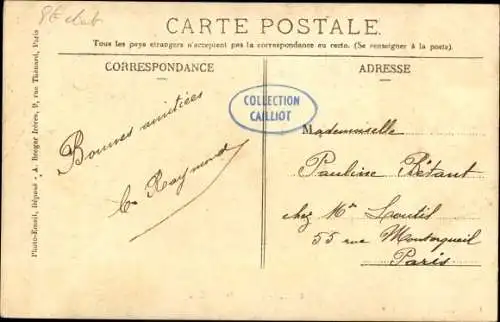 CARTE POSTALE
Tous les pays étrangers n'acceptent pas la correspondance au recto. (Se renseigner à la poste).
CORRESPONDANCE
ADRESSE
Photo-Email, Déposé - A. Breger frères, 9, rue Thénard, Paris
COLLECTION
CAILLIOT
Bonnes amitiées
Raymond
Mademoiselle
Pauline Bétant
chez Mr Loutil
55 rue Montorgueil
Paris